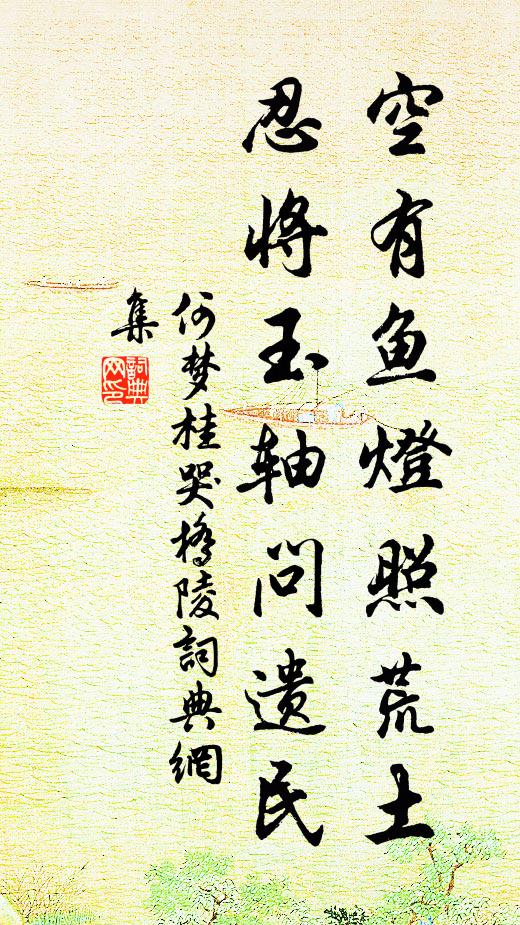 空有鱼燈照荒土
忍将玉轴问遗民
何梦桂哭橋陵詞典網
集
詞典
网印